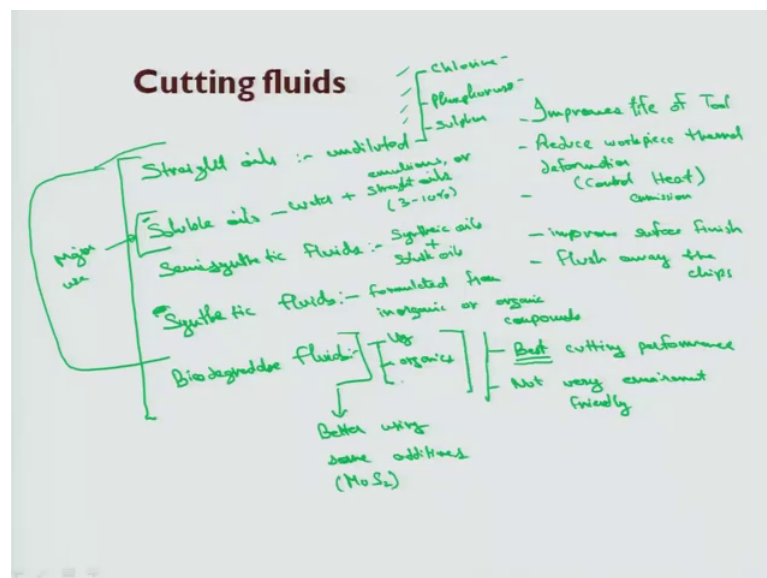 Cutting fluids
Chlorine -
Phosphorous -
Sulphur
Straight oils :- undiluted
emulsions, or
Soluble oils - Water + Straight oils
(3-10%)
Semisynthetic fluids :- Synthetic oils
+
oils
Synthetic fluids :- formulated from
inorganic or organic
compounds
Biodegradable fluids :-
Veg
organics
Major
use
Better using
some additives
(MoS2)
- Improves life of Tool
- Reduce workpiece thermal
deformation
(Control Heat)
-
- improve surface finish
- Flush away the
chips
- Best cutting performance
- Not very environment
friendly